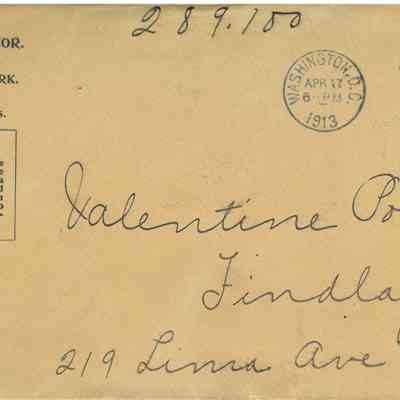 289.100
OR.
RK.
s.
WASHINGTON, D.C.
APR 17
6 PM
1913
Valentine Po
Findla
219 Lima Ave